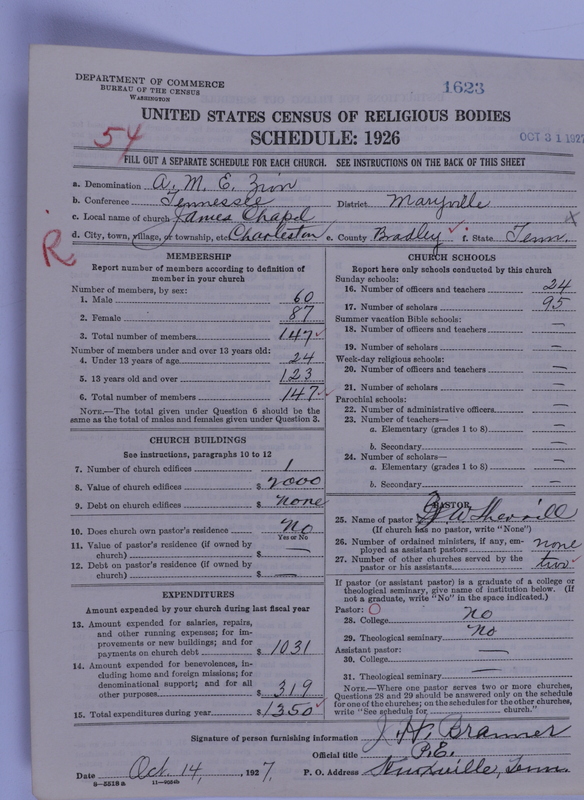 DEPARTMENT OF COMMERCE
BUREAU OF THE CENSUS
WASHINGTON
1623
UNITED STATES CENSUS OF RELIGIOUS BODIES
SCHEDULE: 1926
54
OCT 31 1927
FILL OUT A SEPARATE SCHEDULE FOR EACH CHURCH. SEE INSTRUCTIONS ON THE BACK OF THIS SHEET
a. Denomination A. M. E. Zion
b. Conference Tennessee District Maryville
c. Local name of church James Chapel
d. City, town, village, or township, etc. Charleston e. County Bradley f. State Tenn.
R
MEMBERSHIP
Report number of members according to definition of
member in your church
Number of members, by sex:
1. Male 60
2. Female 87
3. Total number of members 147
Number of members under and over 13 years old:
4. Under 13 years of age 24
5. 13 years old and over 123
6. Total number of members 147
NOTE.—The total given under Question 6 should be the
same as the total of males and females given under Question 3.
CHURCH BUILDINGS
See instructions, paragraphs 10 to 12
7. Number of church edifices 1
8. Value of church edifices $ 2000
9. Debt on church edifices $ none
10. Does church own pastor's residence No
Yes or No
11. Value of pastor's residence (if owned by
church) $ —
12. Debt on pastor's residence (if owned by
church) $ —
EXPENDITURES
Amount expended by your church during last fiscal year
13. Amount expended for salaries, repairs,
and other running expenses; for im-
provements or new buildings; and for
payments on church debt $ 1031
14. Amount expended for benevolences, in-
cluding home and foreign missions; for
denominational support; and for all
other purposes $ 319
15. Total expenditures during year $ 1350
CHURCH SCHOOLS
Report here only schools conducted by this church
Sunday schools:
16. Number of officers and teachers 24
17. Number of scholars 95
Summer vacation Bible schools:
18. Number of officers and teachers —
19. Number of scholars —
Week-day religious schools:
20. Number of officers and teachers —
21. Number of scholars —
Parochial schools:
22. Number of administrative officers —
23. Number of teachers—
a. Elementary (grades 1 to 8) —
b. Secondary —
24. Number of scholars—
a. Elementary (grades 1 to 8) —
b. Secondary —
PASTOR
25. Name of pastor W. Sherrill
(If church has no pastor, write "None")
26. Number of ordained ministers, if any, em-
ployed as assistant pastors none
27. Number of other churches served by the
pastor or his assistants two
If pastor (or assistant pastor) is a graduate of a college or
theological seminary, give name of institution below. (If
not a graduate, write "No" in the space indicated.)
Pastor:
28. College no
29. Theological seminary no
Assistant pastor:
30. College —
31. Theological seminary —
NOTE.—Where one pastor serves two or more churches,
Questions 28 and 29 should be answered only on the schedule
for one of the churches; on the schedules for the other churches,
write "See schedule for church."
Signature of person furnishing information J. H. Branner
Official title P.E.
Date Oct. 14, 1927. P. O. Address Knoxville, Tenn.
8—5518 a